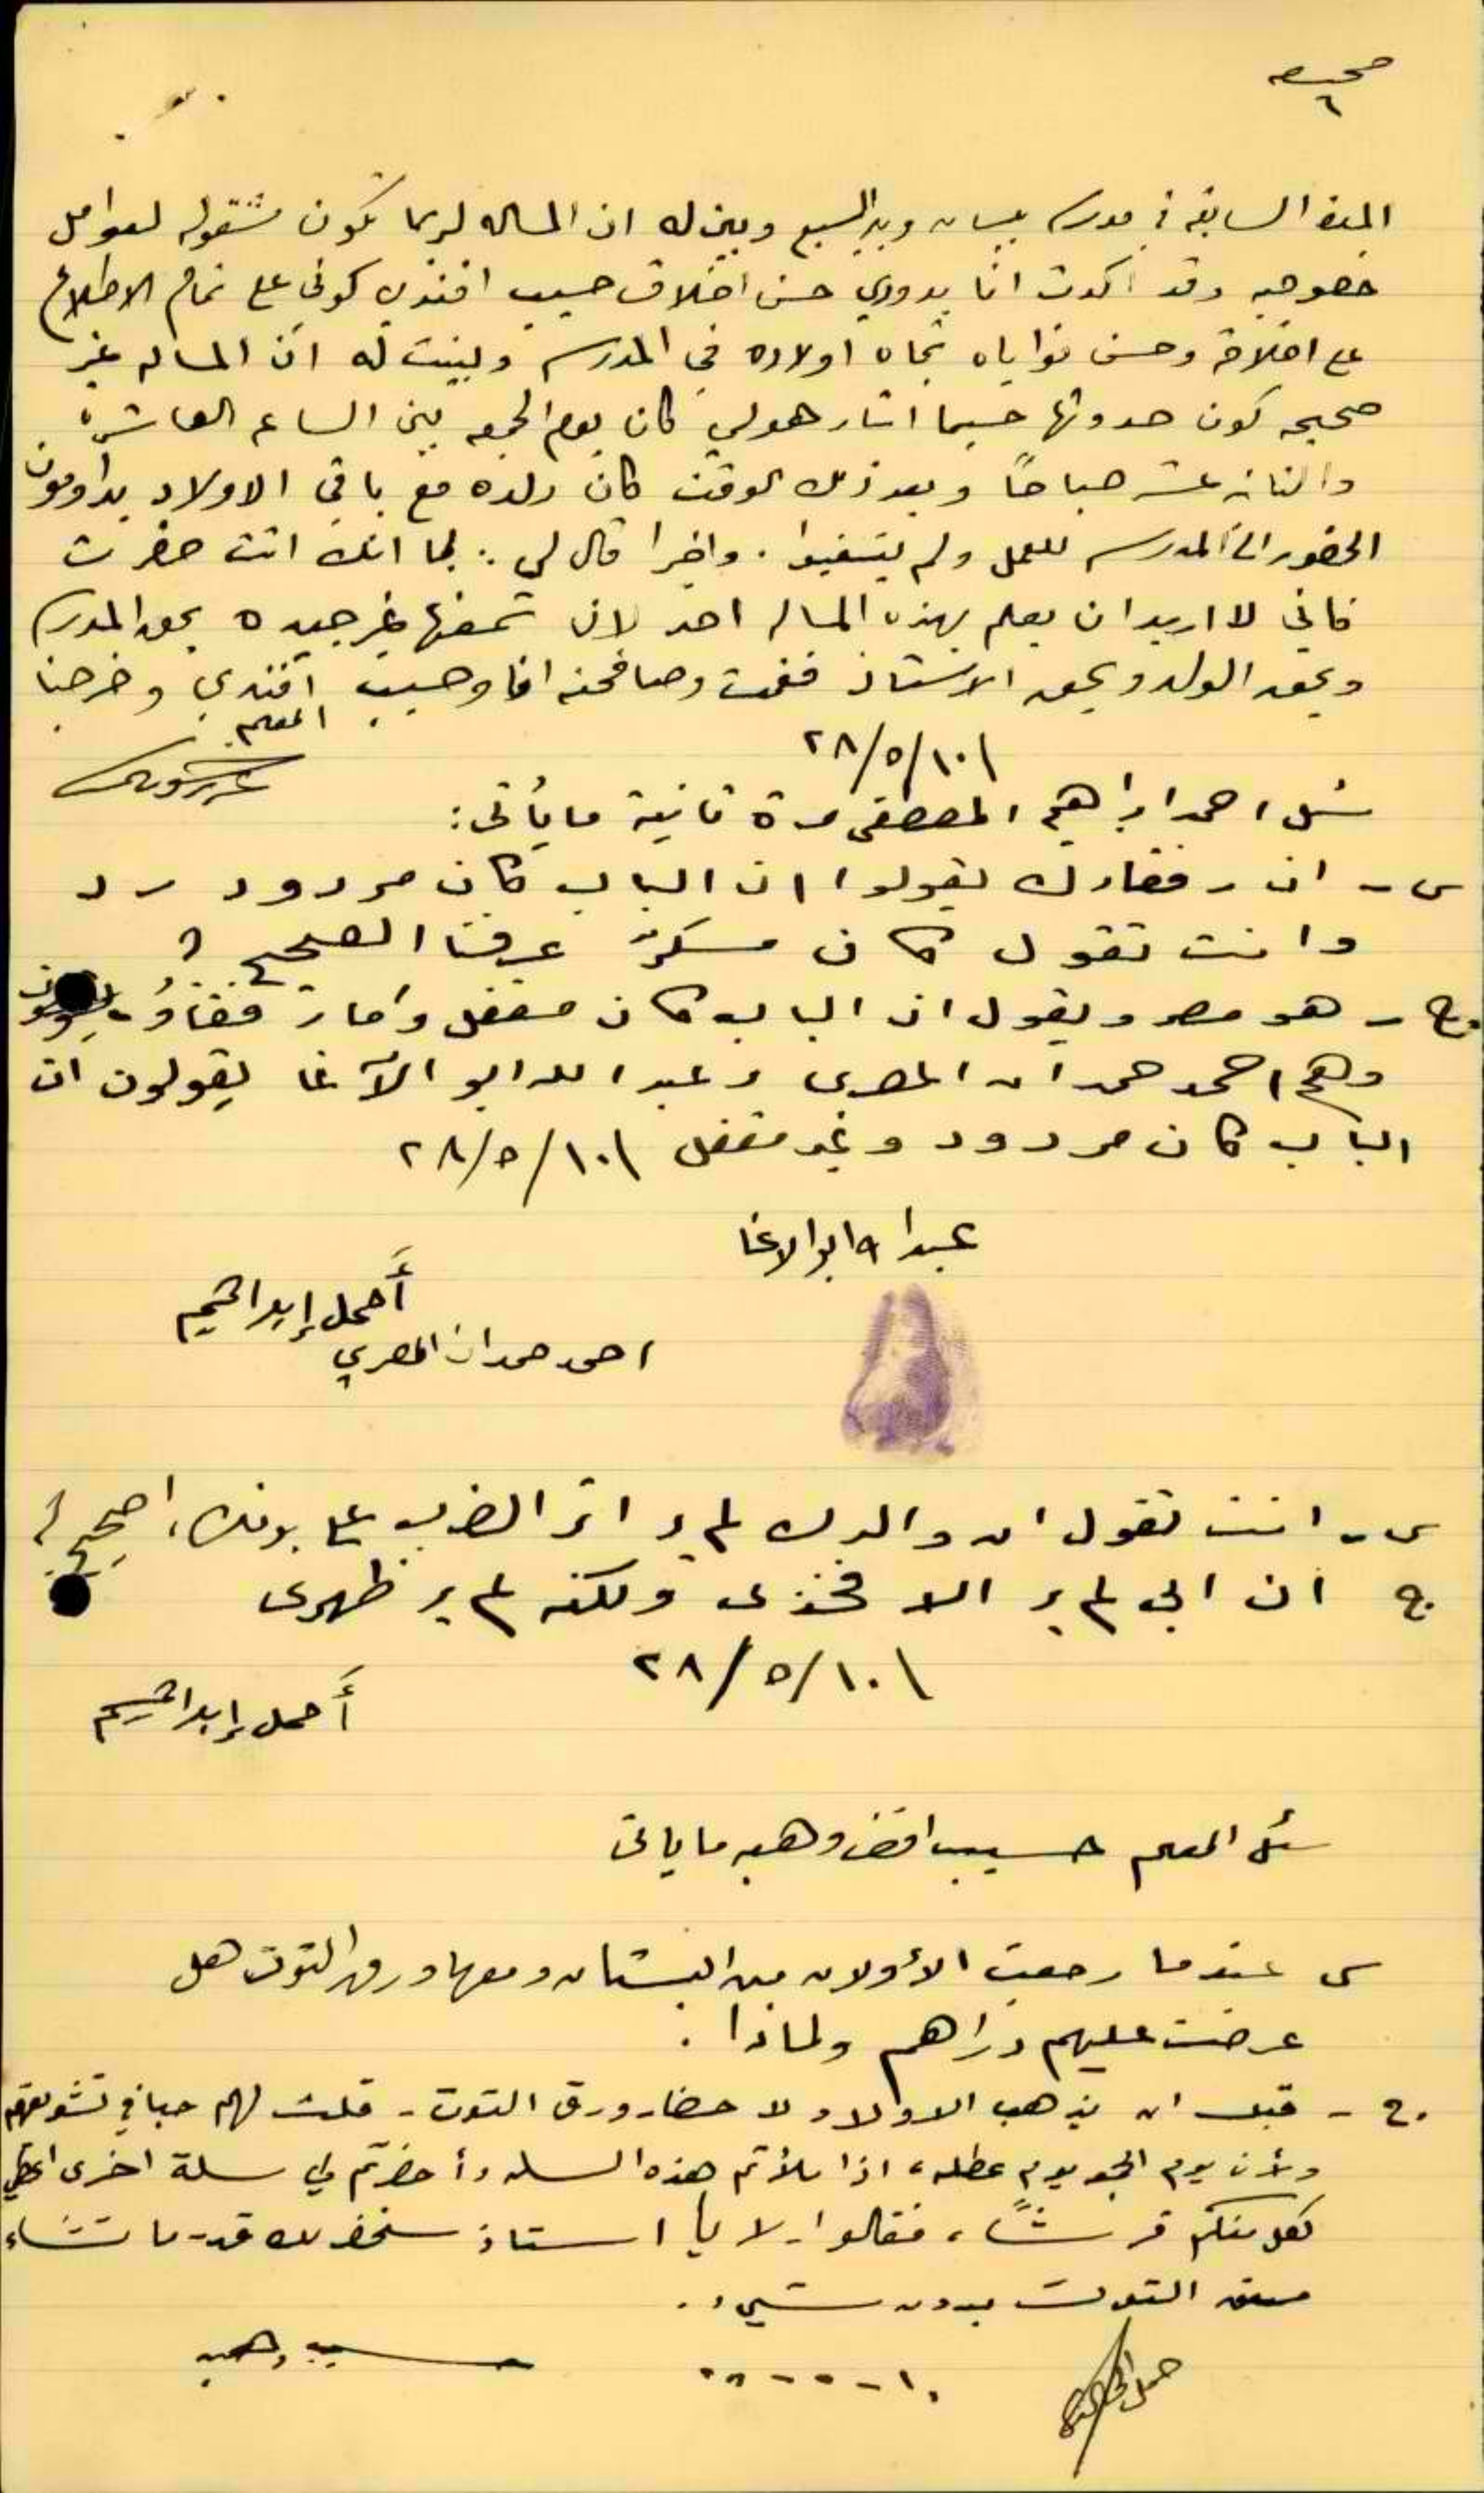 صحيفه
٦
المدة السابقة في مدرسة بيسان وبير السبع وبين له ان المساله لربما تكون مشغوله لعوامل
خصوصيه وقد اكدت انا بدوري حسن اخلاق حسيب افندي كوني على تمام الاطلاع
على اخلاقه وحسن نواياه تجاه اولاده في المدرسه وبينت له ان المساله غير
صحيحه كون حدوثها حسبما اشار هولي كان يوم الجمعه بين الساعه العاشره
والثانيه عشر صباحاً وبعد ذلك الوقت كان ولده مع باقي الاولاد يداومون
الحضور الى المدرسه للعمل ولم يتغيبوا . واخيرا قال لي : بما انك انت حضرت
فاني لا اريد ان يعلم بهذه المساله احد لان سمعتها غير جيده بحق المدرسه
وبحق الولد وبحق الاستاذ فقمت وصافحته انا وحسيب افندي وخرجنا
٢٨/٥/١٠
المعلم
سُئل احمد ابراهيم المصطفى مرة ثانية ما يأتى :
س - ان رفقاءك يقولوا ان الباب كان مردود رد
وانت تقول كان مسكرً عرفنا الصحيح ؟
ج - هو مصر ويقول ان الباب كان مقفل وأما رفقاؤه
وهم احمد حمدان المصرى وعبد الله ابو الآغا يقولون ان
الباب كان مردود وغير مقفل ٢٨/٥/١٠
عبدا لله ابو الاغا
أحمل إبراهيم
احمد حمدان المصري
س - انت تقول ان والدك لم ير اثر الضرب على بدنك ، اصحيح ؟
ج ان ابى لم ير الا فخذى ولكنه لم ير ظهرى
٢٨/٥/١٠
أحمل إبراهيم
سئل المعلم حسيب افندي وهبه ما ياتى
س عندما رجعت الأولاد من البستان ومعها ورق التوت هل
عرضت عليهم دراهم ولماذا .
ج - قبل ان يذهب الاولاد لاحضار ورق التوت - قلت لهم حبا في تشويقهم
ولأن يوم الجمعه يوم عطله ، اذا ملأتم هذه السله وأحضرتم لي سلة اخرى اعطي
لكل منكم قرشاً ، فقالوا - لا يا استاذ سنحضر لك قدر ما تشاء
من التوت بدون شيء .
١٠-٥-٢٨
حسيب وهبه